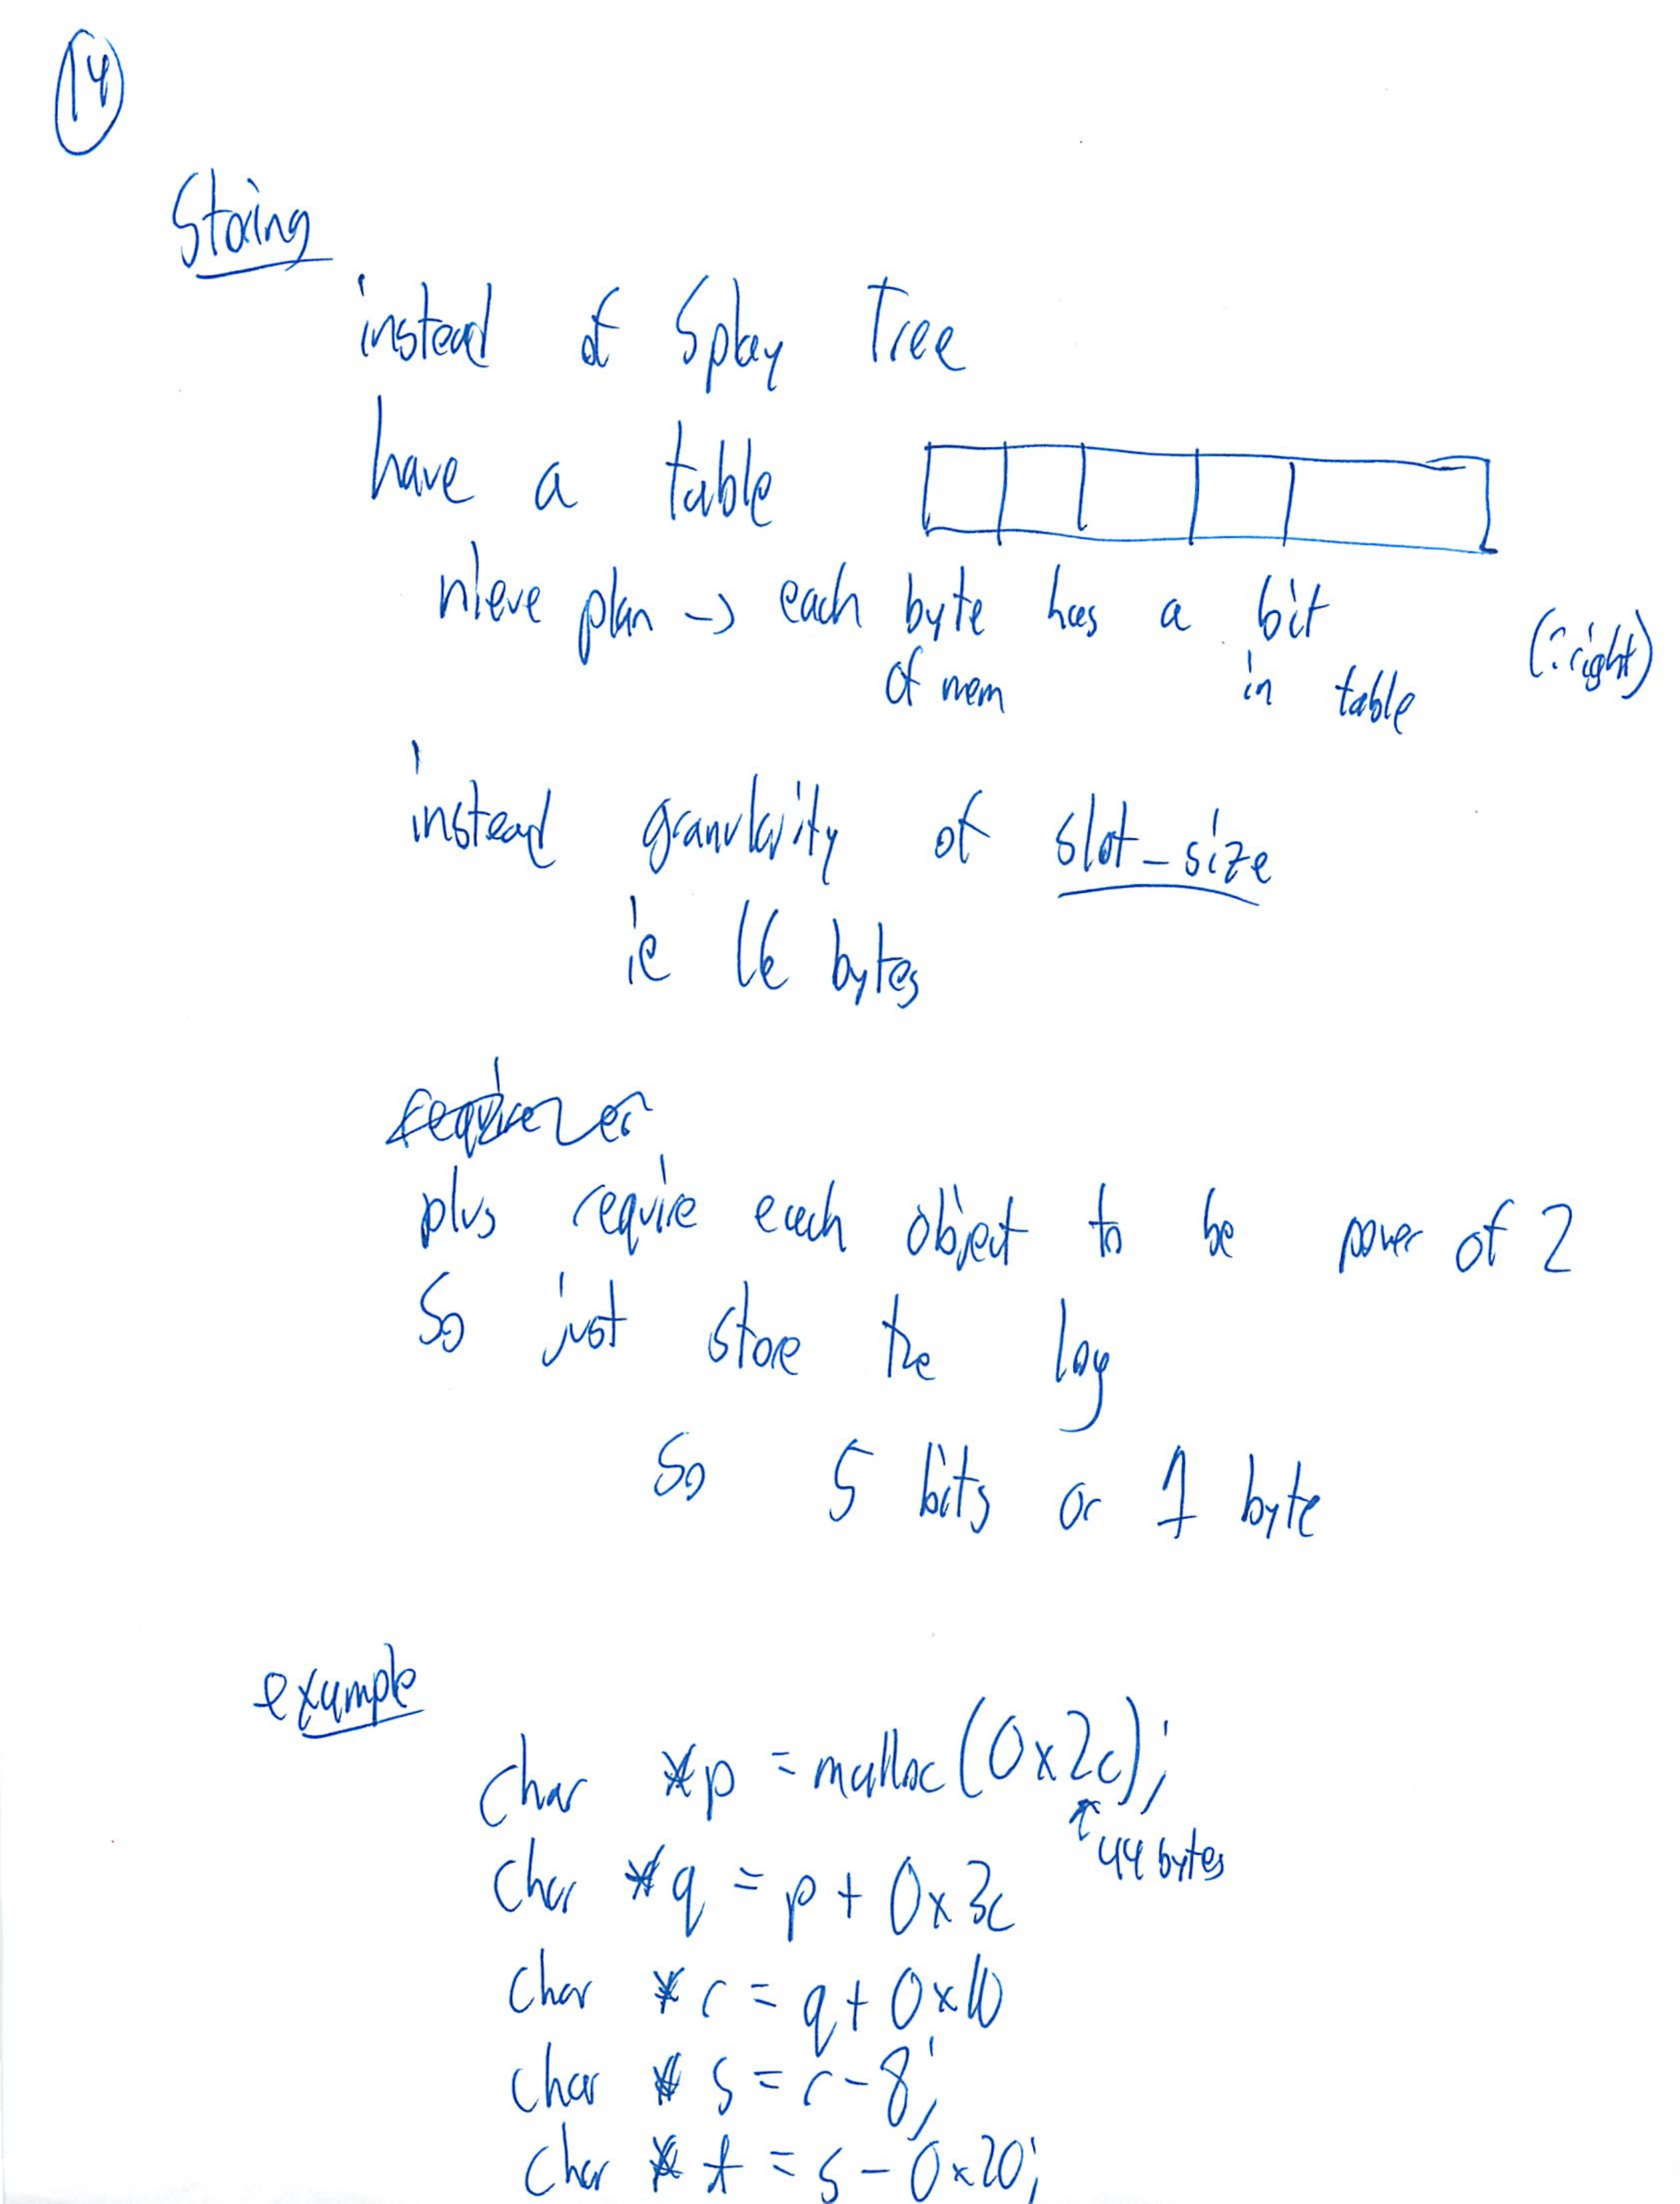 14
Storing
instead of Splay Tree
have a table
nieve plan -> each byte has a bit
of mem in table (?right)
instead granularity of slot-size
ie 16 bytes
plus require each object to be power of 2
So just store the log
So 5 bits or 1 byte
example
char *p = malloc(0x2c);
↑ 44 bytes
char *q = p + 0x3c
char *r = q + 0x10
char *s = r - 8;
char *t = s - 0x20;